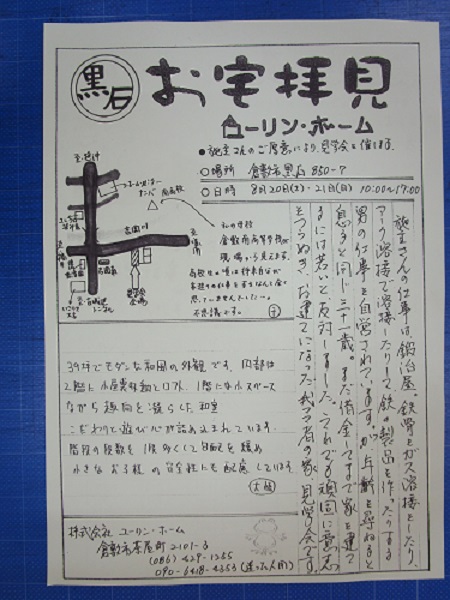 黒石
お宅拝見
ユーリン・ホーム
●施主さんのご厚意により、見学会を催します。
○場所 倉敷市黒石850-7
○日時 8月20日(土)・21日(日) 10:00〜17:00
私の母校
倉敷南高等学校が
現場から見えます。
不思議です。
吉岡川
見学会
会場
施主さんの仕事は鍛冶屋。鉄骨をガス溶接をしたり、
アーク溶接で溶接したりして鉄の製品を作ったりする
男の仕事を自営されています。が、年齢を尋ねると
息子と同じ三十一歳。まだ借金してまで家を建て
るには若いと反対しました。それでも頑固に意志
をつらぬき、お建てになった我つ者の家、見学会です。
39坪でモダンな和風の外観です。内部は
2階に小屋裏収納とロフト、1階には小スペース
ながら趣向を凝らした和室
こだわりと遊び心が詰め込まれています。
階段の段数を1段多くして勾配を緩め
小さなお子様の安全性にも配慮しています。
株式会社 ユーリン・ホーム
倉敷市茶屋町2101-3
(086)429-1255
090-6418-4353(迷った人用)